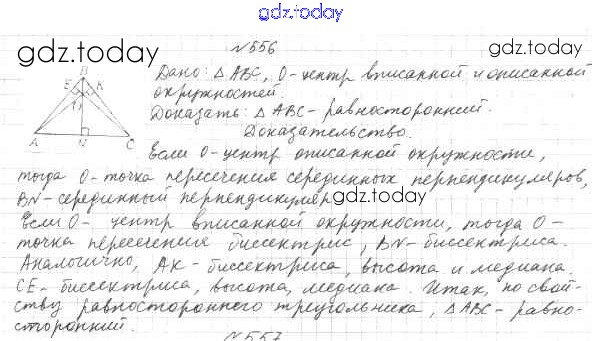 gdz.today
№556
gdz.today
gdz.today
B
E K
O
A N C
Дано: △ABC, O-центр вписанной и описанной
окружностей.
Доказать: △ABC - равносторонний.
Доказательство.
Если O-центр описанной окружности,
тогда O-точка пересечения серединных перпендикуляров,
BN-серединный перпендикуляр
gdz.today
Если O- центр вписанной окружности, тогда O-
точка пересечения биссектрис, BN-биссектриса.
Аналогично, AK-биссектриса, высота и медиана.
CE-биссектриса, высота, медиана. Итак, по свой-
ству равностороннего треугольника, △ABC-равно-
сторонний.
№557